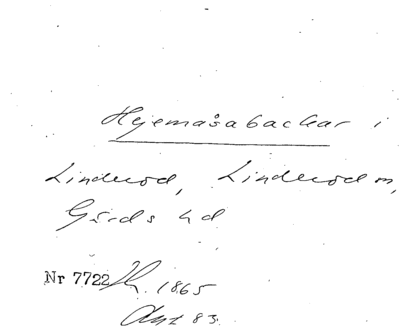 Hejemasabackar i
Linderöd, Linderöd sn,
Gärds hd
Nr 7722 1865
83